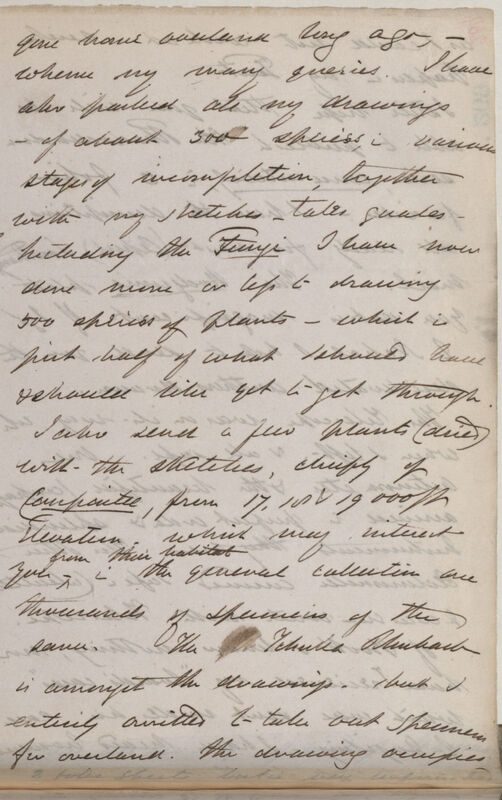 gone home overland long ago, —
whence my many queries. I have
also packed all my drawings
— of about 300 species in various
stages of incompletion, together
with my sketches —
Including the Fungi I have now
done more or less to drawing
500 species of plants — which is
just half of what I should have
& should like yet to get through.
I also send a few plants (dried)
with the sketches, chiefly of
Compositae, from 17, 18 & 19 000 ft
Elevation, which may interest
from their habitat
you ^ in the general collection are
thousands of specimens of the
same. The Tchuka Rhubarb
is amongst the drawings. but I
entirely omitted to take out specimens
for overland. The drawing occupies